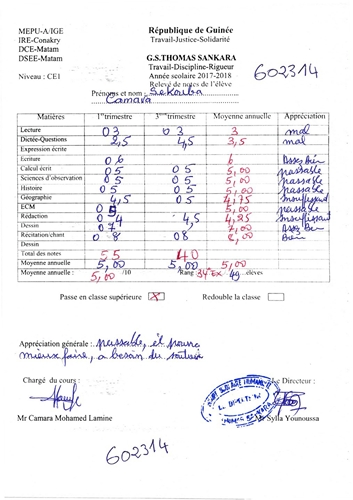 MEPU-A/IGE
IRE-Conakry
DCE-Matam
DSEE-Matam
Niveau : CE1
République de Guinée
Travail-Justice-Solidarité
G.S.THOMAS SANKARA
Travail-Discipline-Rigueur
Année scolaire 2017-2018
Relevé de notes de l'élève
602314
Prénoms et nom : Sekouba
Camara
Matières 1er trimestre 3ème trimestre Moyenne annuelle Appréciation
Lecture 03 03 3 mal
Dictée-Questions 2,5 4,5 3,5 mal
Expression écrite
Ecriture 06 6 Assez Bien
Calcul écrit 05 05 5,00 passable
Sciences d'observation 05 05 5,00 passable
Histoire 05 05 5,00 passable
Géographie 4,5 05 4,75 insuffisant
ECM 05 5,00 passable
Rédaction 04 4,5 4,25 insuffisant
Dessin 07 7,00 Assez Bien
Récitation/chant 08 08 8,00 Bien
Dessin
Total des notes 55 40
Moyenne annuelle 5,00 5,00 5,00
Moyenne annuelle : 5,00 /10 Rang 34è EX 49 élèves
Passe en classe supérieure X Redouble la classe
Appréciation générale : passable, et pour
mieux faire, a besoin du soutien
Chargé du cours : Le Directeur :
Mr Camara Mohamed Lamine Mr Sylla Younoussa
602314